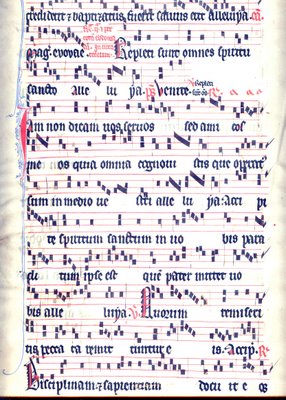 crediderit z baptizatus fuerit saluus erit alleluya
mag. evovae Repleti sunt omnes spiritu
sancto alle lu ya. Venite. Repleti
am non dicam uos seruos sed ami cos
me os quia omnia cognoui stis que operatus
sum in medio ue stri alle lu ya. Acci pi
te spiritum sanctum in uo bis para
cli tum ipse est que pater mittet uo
bis alle luya. Quorum remiseri
tis pecca ta remit tuntur e is. Accip.
Disciplinam z sapientiam docu it e os